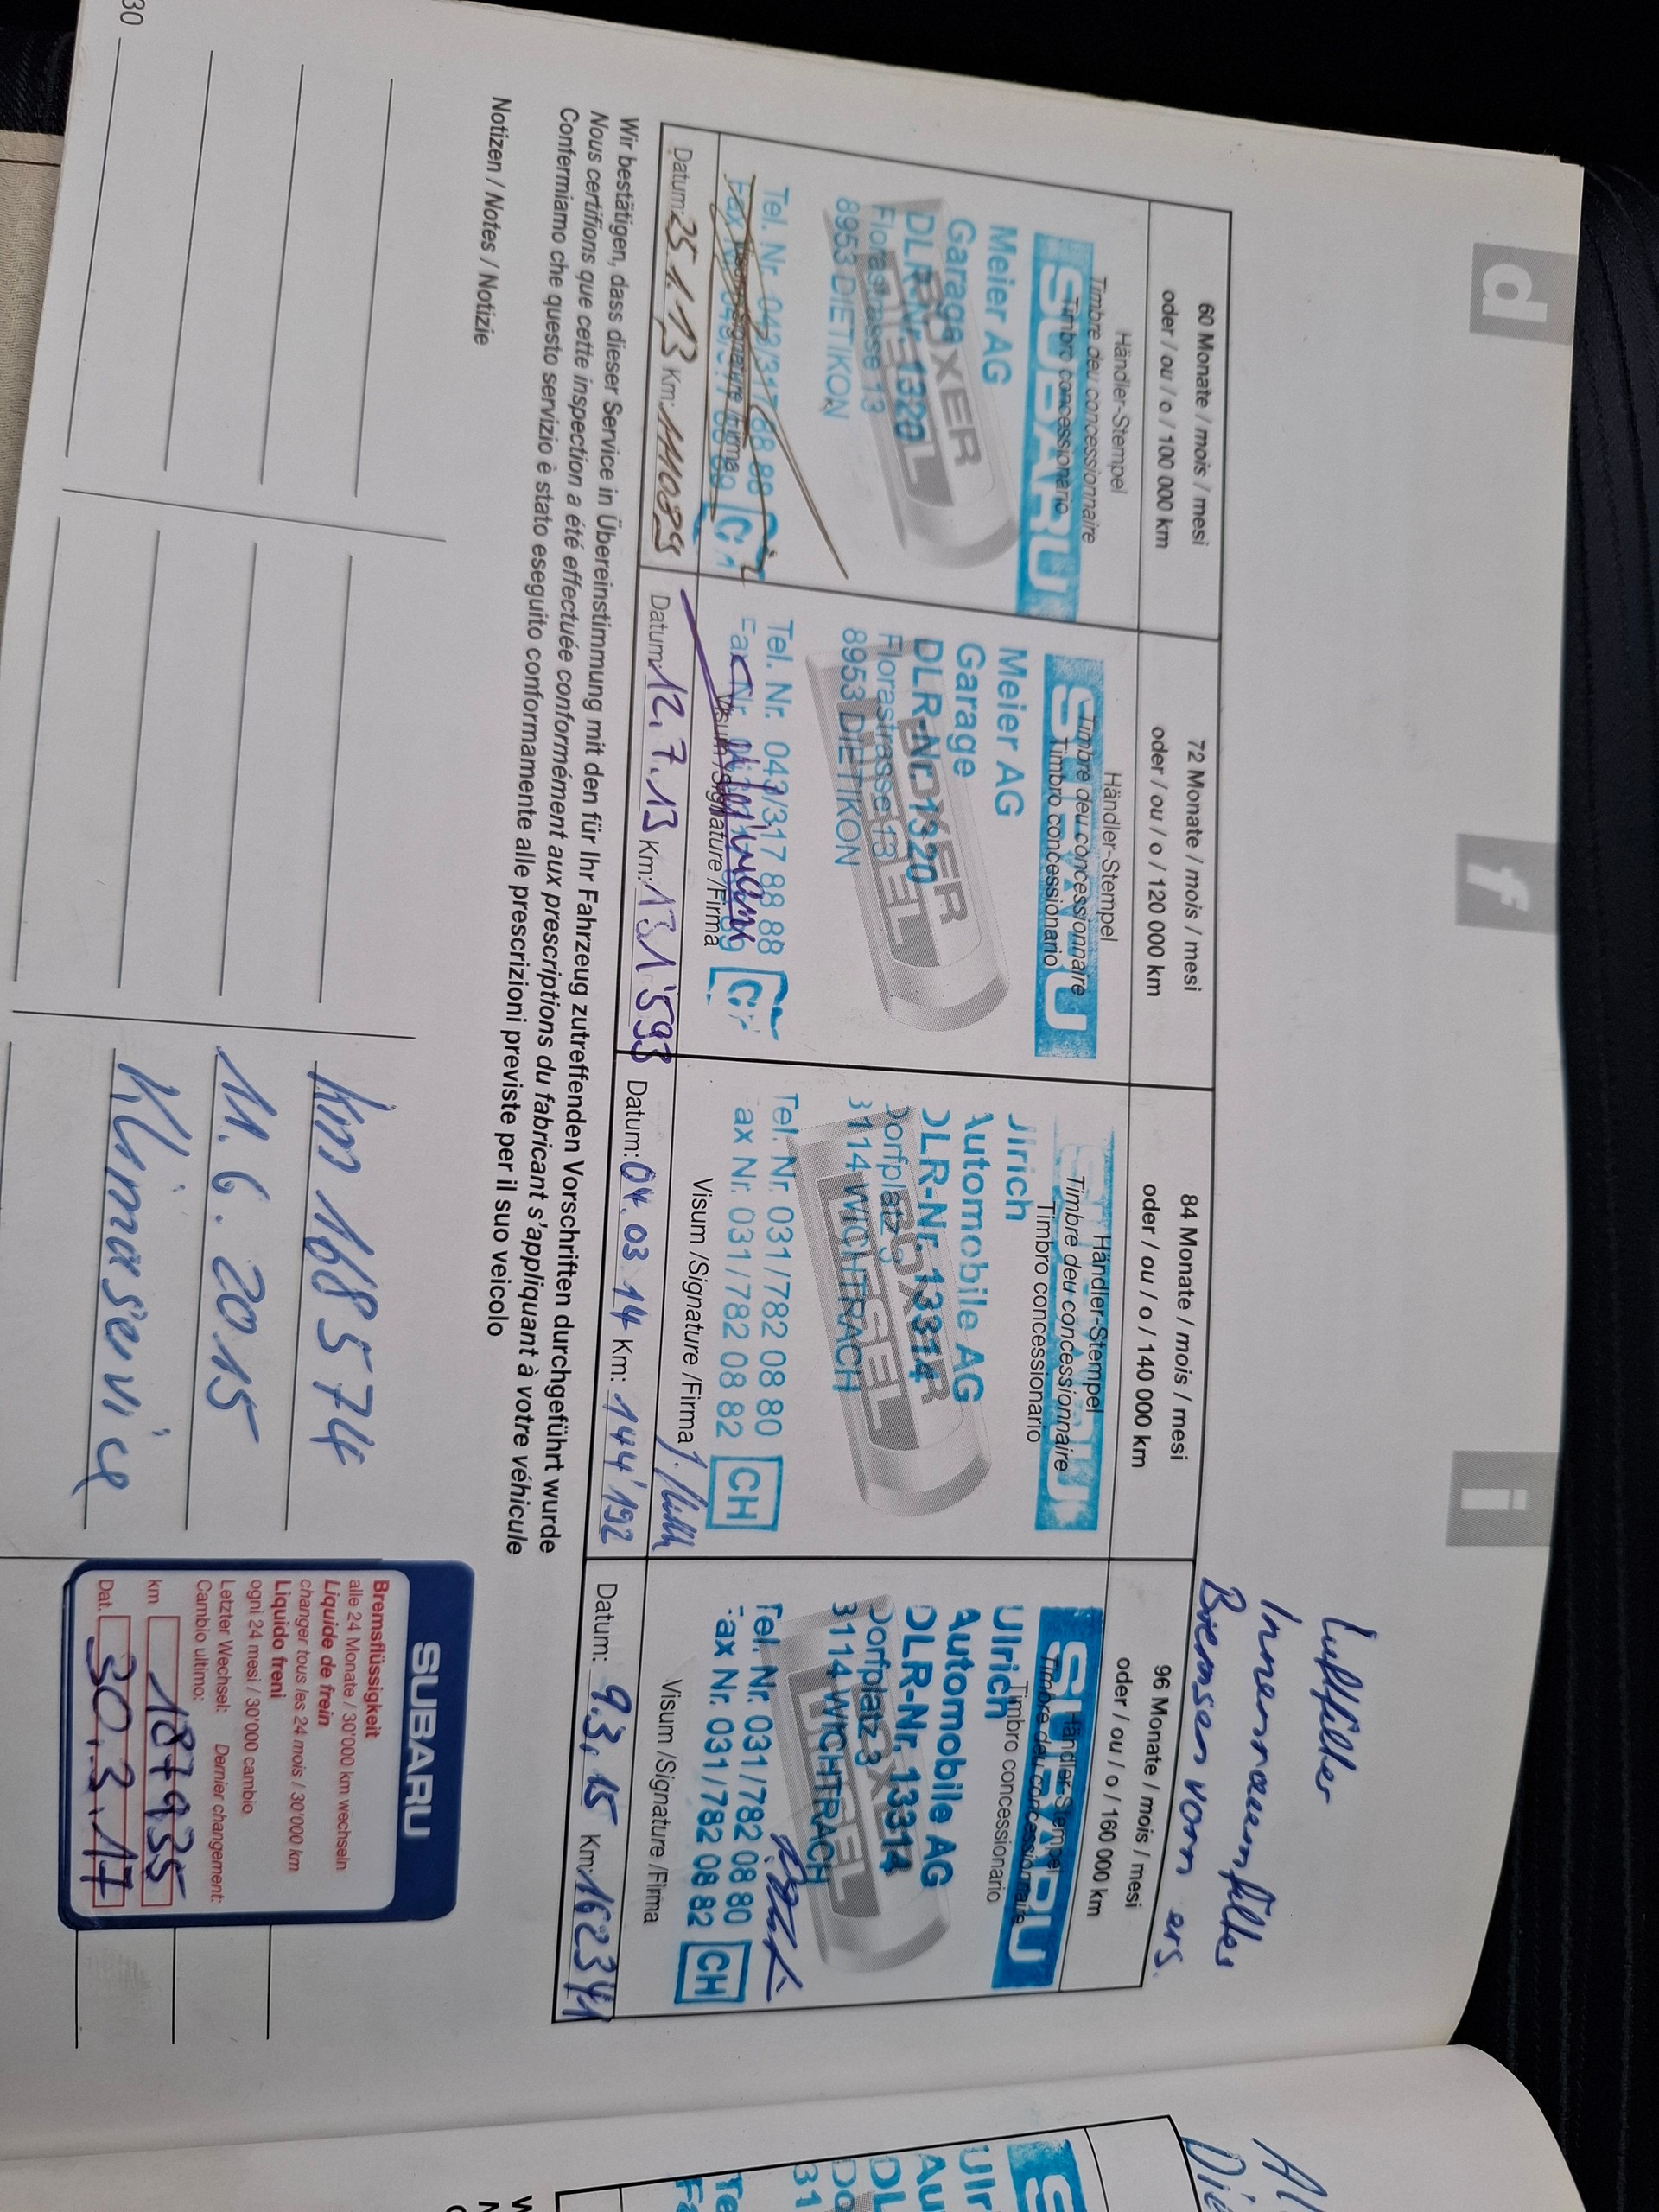 d
f
i
Luftfilter
Innenraumfilter
Bremsen vorn ers.
60 Monate / mois / mesi
oder / ou / o / 100 000 km
Händler-Stempel
Timbre deu concessionnaire
Timbro concessionario
SUBARU
Meier AG
Garage
DLR-Nr. 1320
Florastrasse 13
8953 DIETIKON
BOXER
DIESEL
Tel. Nr. 043/317 88 88
Datum: 25.1.13 Km: 111089
72 Monate / mois / mesi
oder / ou / o / 120 000 km
Händler-Stempel
Timbre deu concessionnaire
Timbro concessionario
SUBARU
Meier AG
Garage
DLR-Nr. 1320
Florastrasse 13
8953 DIETIKON
BOXER
DIESEL
Tel. Nr. 043/317 88 88
Fax Nr.
Visum /Signature /Firma
Datum: 12.7.13 Km: 131'593
84 Monate / mois / mesi
oder / ou / o / 140 000 km
Händler-Stempel
Timbre deu concessionnaire
Timbro concessionario
Ulrich
Automobile AG
DLR-Nr. 13314
Dorfplatz 3
3114 WICHTRACH
BOXER
DIESEL
Tel. Nr. 031/782 08 80
Fax Nr. 031/782 08 82
CH
Visum /Signature /Firma
Datum: 04.03.14 Km: 144'192
96 Monate / mois / mesi
oder / ou / o / 160 000 km
Händler-Stempel
Timbre deu concessionnaire
Timbro concessionario
SUBARU
Ulrich
Automobile AG
DLR-Nr. 13314
Dorfplatz 3
3114 WICHTRACH
Tel. Nr. 031/782 08 80
Fax Nr. 031/782 08 82
CH
Visum /Signature /Firma
Datum: 9.3.15 Km: 162341
Wir bestätigen, dass dieser Service in Übereinstimmung mit den für Ihr Fahrzeug zutreffenden Vorschriften durchgeführt wurde
Nous certifions que cette inspection a été effectuée conformément aux prescriptions du fabricant s'appliquant à votre véhicule
Confermiamo che questo servizio è stato eseguito conformamente alle prescrizioni previste per il suo veicolo
Notizen / Notes / Notizie
km 168574
11.6.2015
Klimaservice
SUBARU
Bremsflüssigkeit
alle 24 Monate / 30'000 km wechseln
Liquide de frein
changer tous les 24 mois / 30'000 km
Liquido freni
ogni 24 mesi / 30'000 cambio
Letzter Wechsel: Dernier changement:
Cambio ultimo:
km 187935
Dat. 30.3.17
30